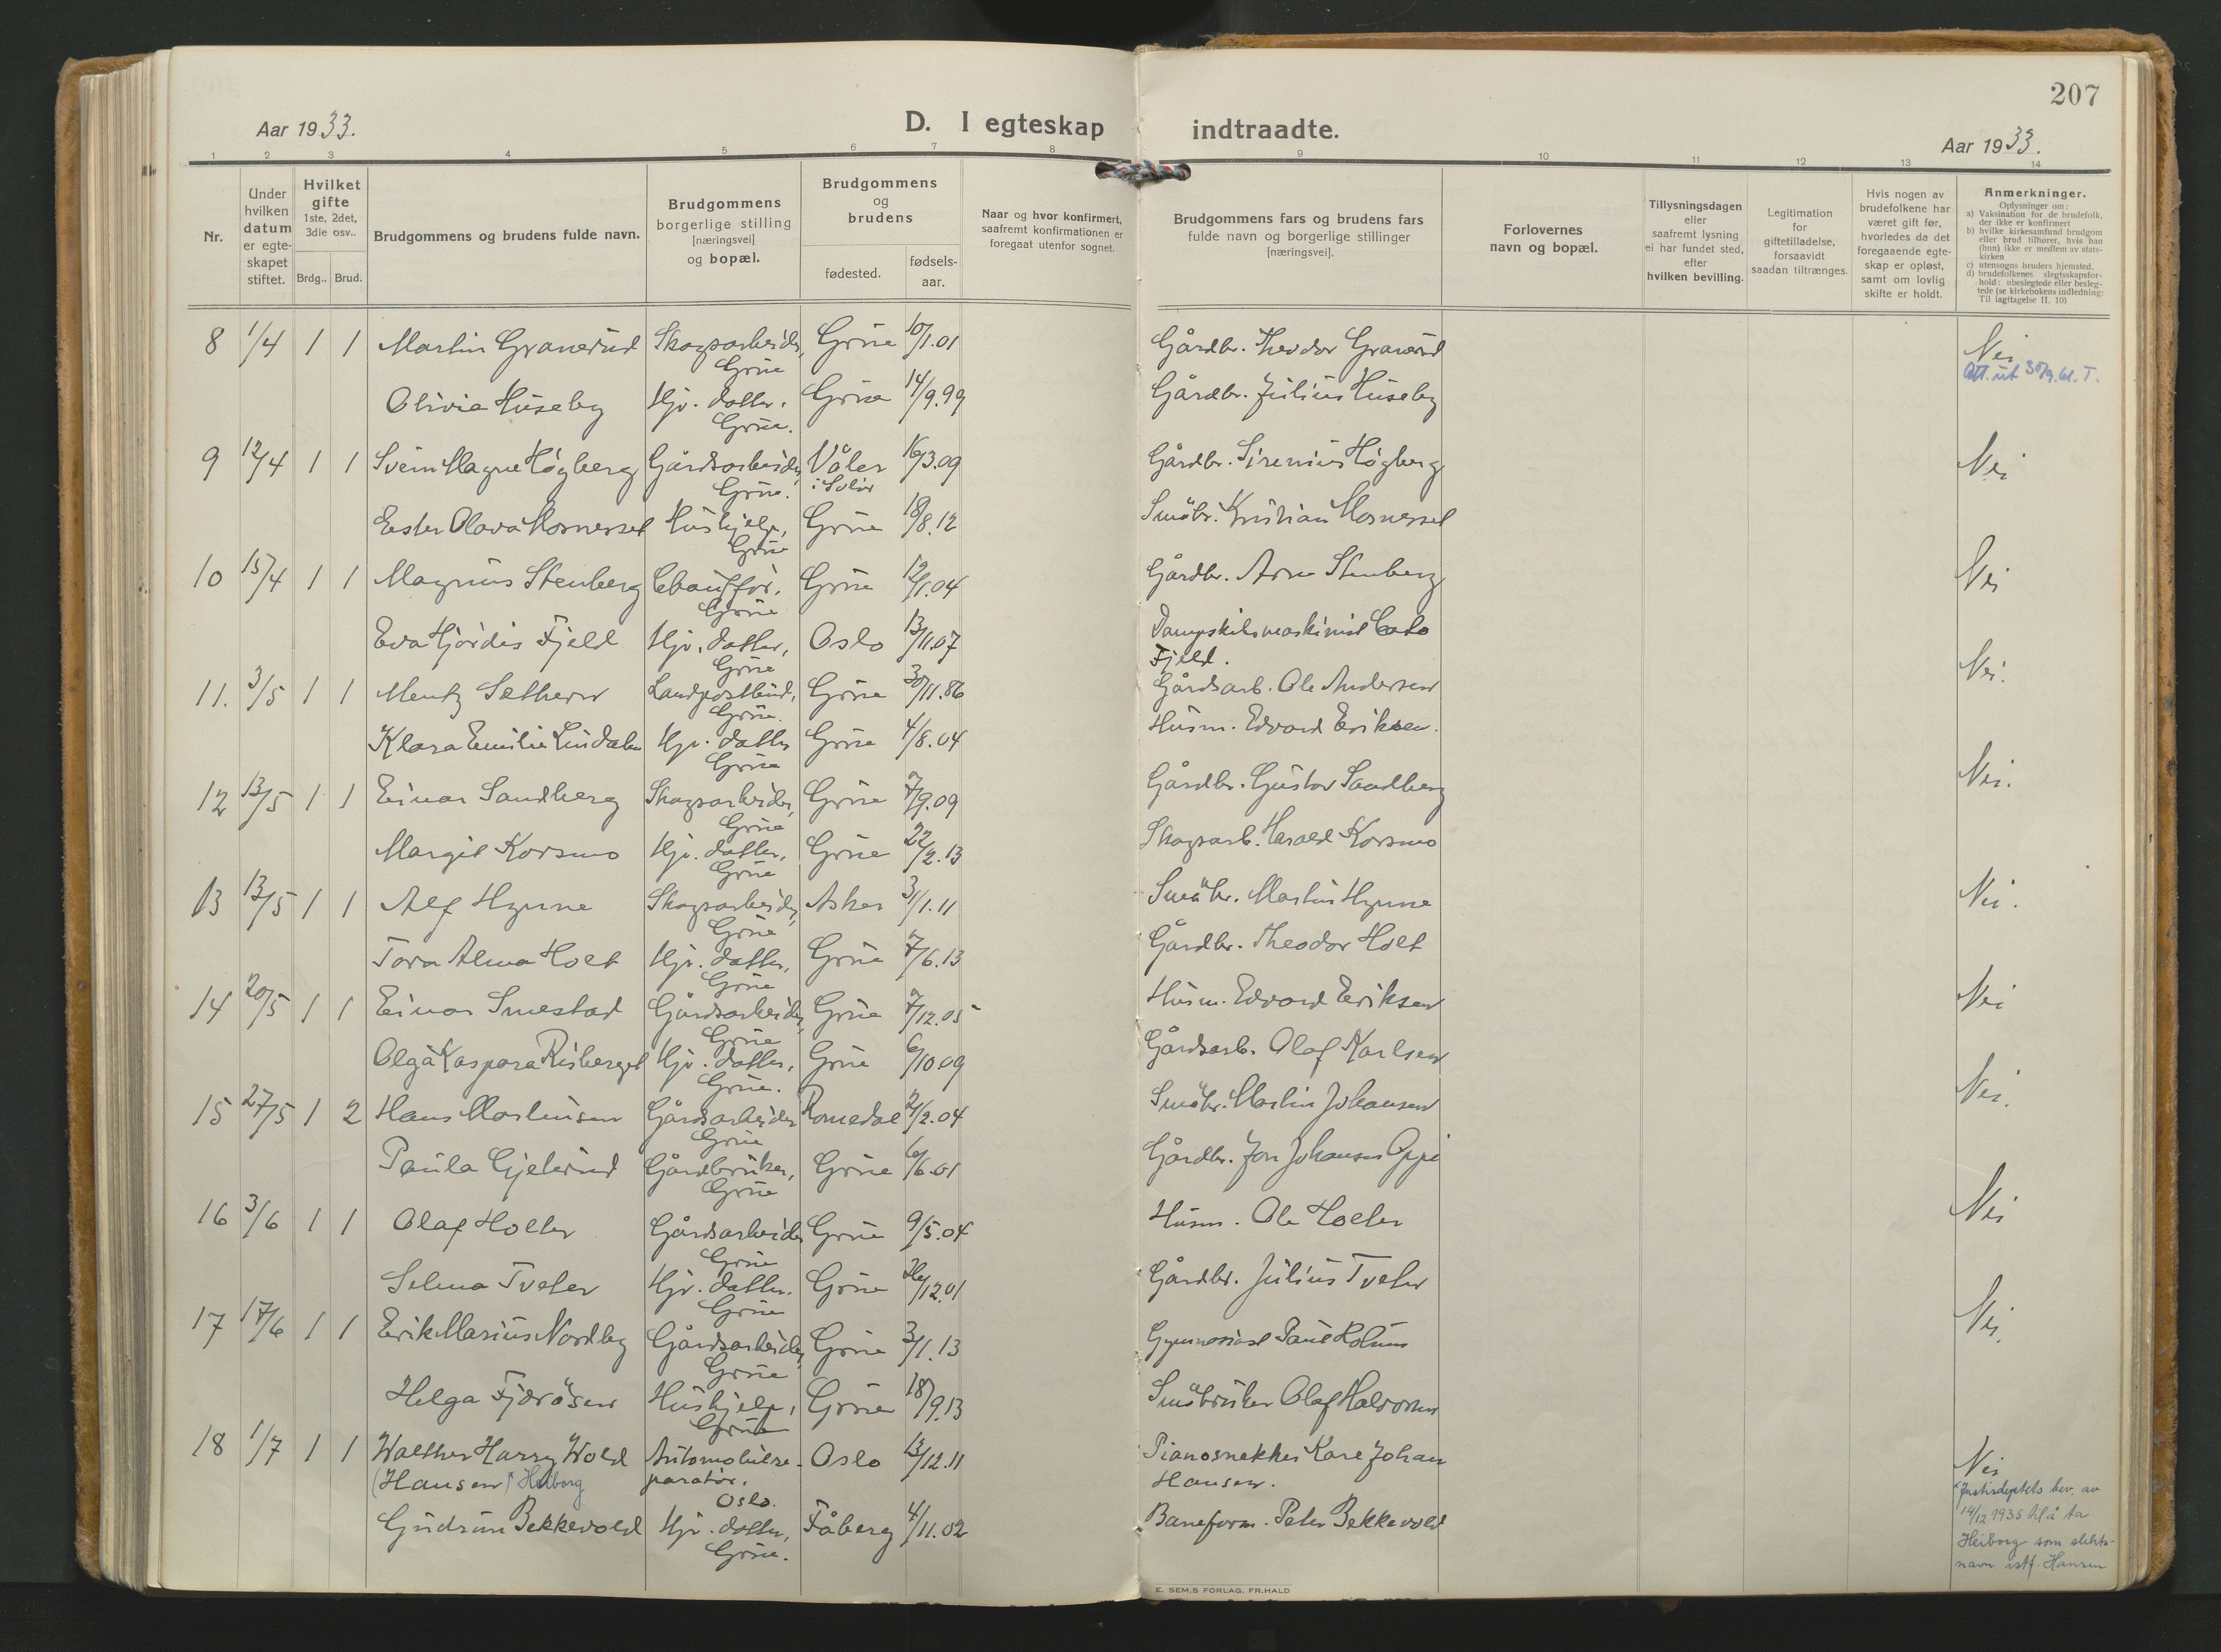 207
Aar 1933.
D. I egteskap indtraadte.
Aar 1933.
1 2 3 4 5 6 7 8 9 10 11 12 13 14
Nr.
Under hvilken datum er egteskapet stiftet.
Hvilket gifte 1ste, 2det, 3die osv..
Brdg.. Brud.
Brudgommens og brudens fulde navn.
Brudgommens borgerlige stilling [næringsvei] og bopæl.
Brudgommens og brudens
fødested.
fødsels-aar.
Naar og hvor konfirmert, saafremt konfirmationen er foregaat utenfor sognet.
Brudgommens fars og brudens fars fulde navn og borgerlige stillinger [næringsvei].
Forlovernes navn og bopæl.
Tillysningsdagen eller saafremt lysning ei har fundet sted, efter hvilken bevilling.
Legitimation for giftetilladelse, forsaavidt saadan tiltrænges.
Hvis nogen av brudefolkene har været gift før, hvorledes da det foregaaende egteskap er opløst, samt om lovlig skifte er holdt.
Anmerkninger.
Oplysninger om:
a) Vaksination for de brudefolk, der ikke er konfirmert
b) hvilke kirkesamfund brudgom eller brud tilhører, hvis han (hun) ikke er medlem av statskirken
c) utensogns bruders hjemsted.
d) brudefolkenes slegtsskapsforhold: ubeslegtede eller beslegtede (se kirkebokens indledning: Til iagttagelse II. 10)
8 1/4 1 1 Martin Granerud Skogsarbeider, Grue Grue 10/1.01 Gårdbr. Theodor Granerud Nei
Att. ut 30/9.61. T.
Olivia Huseby Hjv. datter. Grue. Grue 14/9.99 Gårdbr. Julius Huseby
9 12/4 1 1 Svein Magne Høgberg Gårdsarbeider, Grue. Våler i Solør 16/3.09 Gårdbr. Sirenius Høgberg Nei
Ester Olava Mosnesset Hushjelp, Grue Grue 18/8.12 Småbr. Kristian Mosnesset
10 15/4 1 1 Magnus Stenberg Chauffør. Grue Grue 12/1.04 Gårdbr. Arne Stenberg Nei
Eva Hjørdis Fjeld Hjv. datter, Grue Oslo 13/11.07 Dampskibsmaskinist Cato Fjeld.
11. 3/5 1 1 Mentz Sethern Landpostbud, Grue. Grue 30/11.86 Gårdsarb. Ole Andersen Nei.
Klara Emilie Lindalen Hjv. datter Grue Grue 4/8.04 Husm. Edvard Eriksen.
12 13/5 1 1 Einar Sandberg Skogsarbeider, Grue Grue 7/9.09 Gårdbr. Gustav Sandberg Nei.
Margit Korsmo Hjv. datter, Grue Grue 22/2.13 Skogsarb. Harald Korsmo
13 13/5 1 1 Alf Hynne Skogsarbeider, Grue Asker 3/1.11 Småbr. Martin Hynne Nei.
Tora Alma Holt Hjv. datter, Grue Grue 7/6.13 Gårdbr. Theodor Holt
14 20/5 1 1 Einar Smestad Gårdsarbeider, Grue Grue 7/12.05 Husm. Edvard Eriksen Nei
Olga Kaspara Risberget Hjv. datter, Grue. Grue 6/10 09 Gårdsarb. Olaf Karlsen
15 27/5 1 2 Hans Martinsen Gårdsarbeider Grue Romedal 2/2.04 Småbr. Martin Johansen Nei.
Paula Gjelerud Gårdbruker, Grue Grue 6/6.01 Gårdbr. Jon Johansen Oppi
16 3/6 1 1 Olaf Holter Gårdsarbeider Grue Grue 9/5.04 Husm. Ole Holter Nei
Selma Tveter Hjv. datter. Grue Grue 26/12.01 Gårdbr. Julius Tveter
17 17/6 1 1 Erik Marius Nordby Gårdsarbeider, Grue Grue 3/1.13 Gymnasiast Paul Holum Nei.
Helga Fjæråsen Hushjelp, Grue Grue 18/9.13 Småbruker Olaf Halvorsen
18 1/7 1 1 Walther Harry Wold (Hansen) x Heiborg Automobilreparatør. Oslo. Oslo 13/12.11 Pianosnekker Kare Johan Hansen. Nei
x Justisdeptets bev. av 14/12 1935 til å ta Heiborg som slektsnavn istf. Hansen
Gudrun Bekkevold Hjv. datter, Grue. Fåberg 4/11.02 Baneform. Peter Bekkevold
E. SEM.S FORLAG, FR.HALD